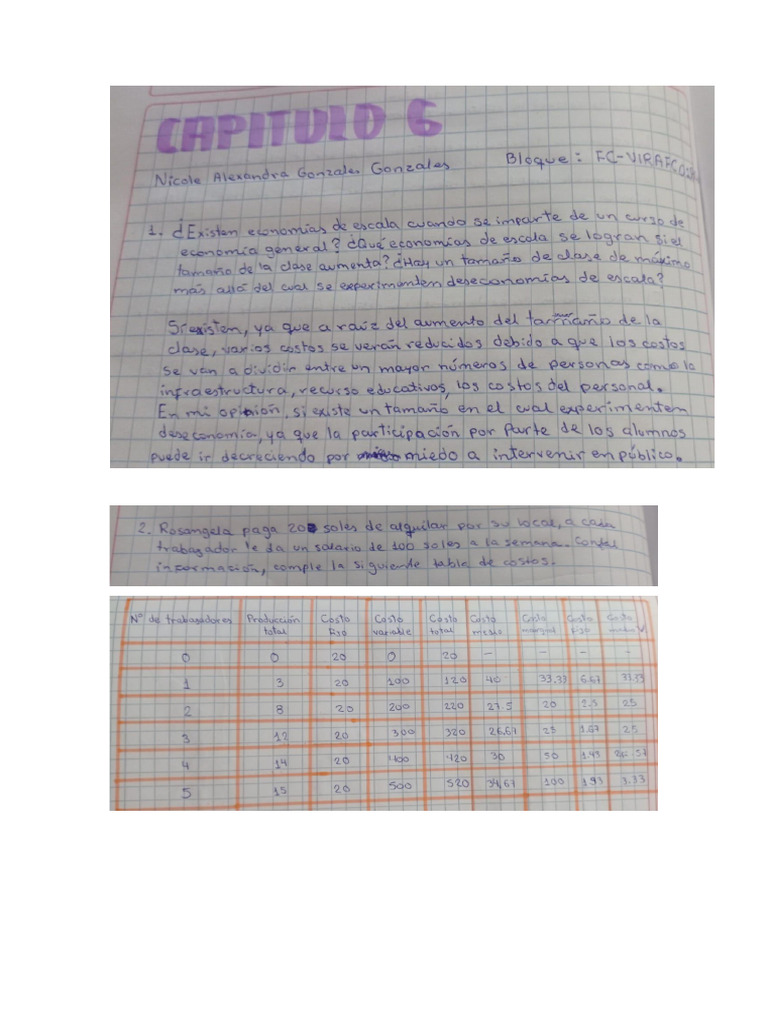 CAPITULO 6
Nicole Alexandra Gonzales Gonzales Bloque: FC-
1. ¿Existen economías de escala cuando se imparte de un curso de
economía general? ¿Qué economías de escala se logran si el
tamaño de la clase aumenta? ¿Hay un tamaño de clase de máximo
más allá del cual se experimenten deseconomías de escala?
Si existen, ya que a raíz del aumento del tamaño de la
clase, varios costos se verán reducidos debido a que los costos
se van a dividir entre un mayor números de personas como la
infraestructura, recurso educativos, los costos del personal.
En mi opinión, si existe un tamaño en el cual experimentem
deseconomía, ya que la participación por parte de los alumnos
puede ir decreciendo por miedo a intervenir en público.
2. Rosangela paga 20 soles de alquilar por su local, a cada
trabagador le da un salario de 100 soles a la semana. Con tal
información, comple la siguiente table de costos.
N° de trabagadores Producción total Costo fijo Costo variable Costo total Costo medio Costo marginal Costo fijo Costo medio V.
0 0 20 0 20 - - - -
1 3 20 100 120 40 33.33 6.67 33.33
2 8 20 200 220 27.5 20 2.5 25
3 12 20 300 320 26,67 25 1.67 25
4 14 20 400 420 30 50 1.43
5 15 20 500 520 34,67 100 1.93 3.33